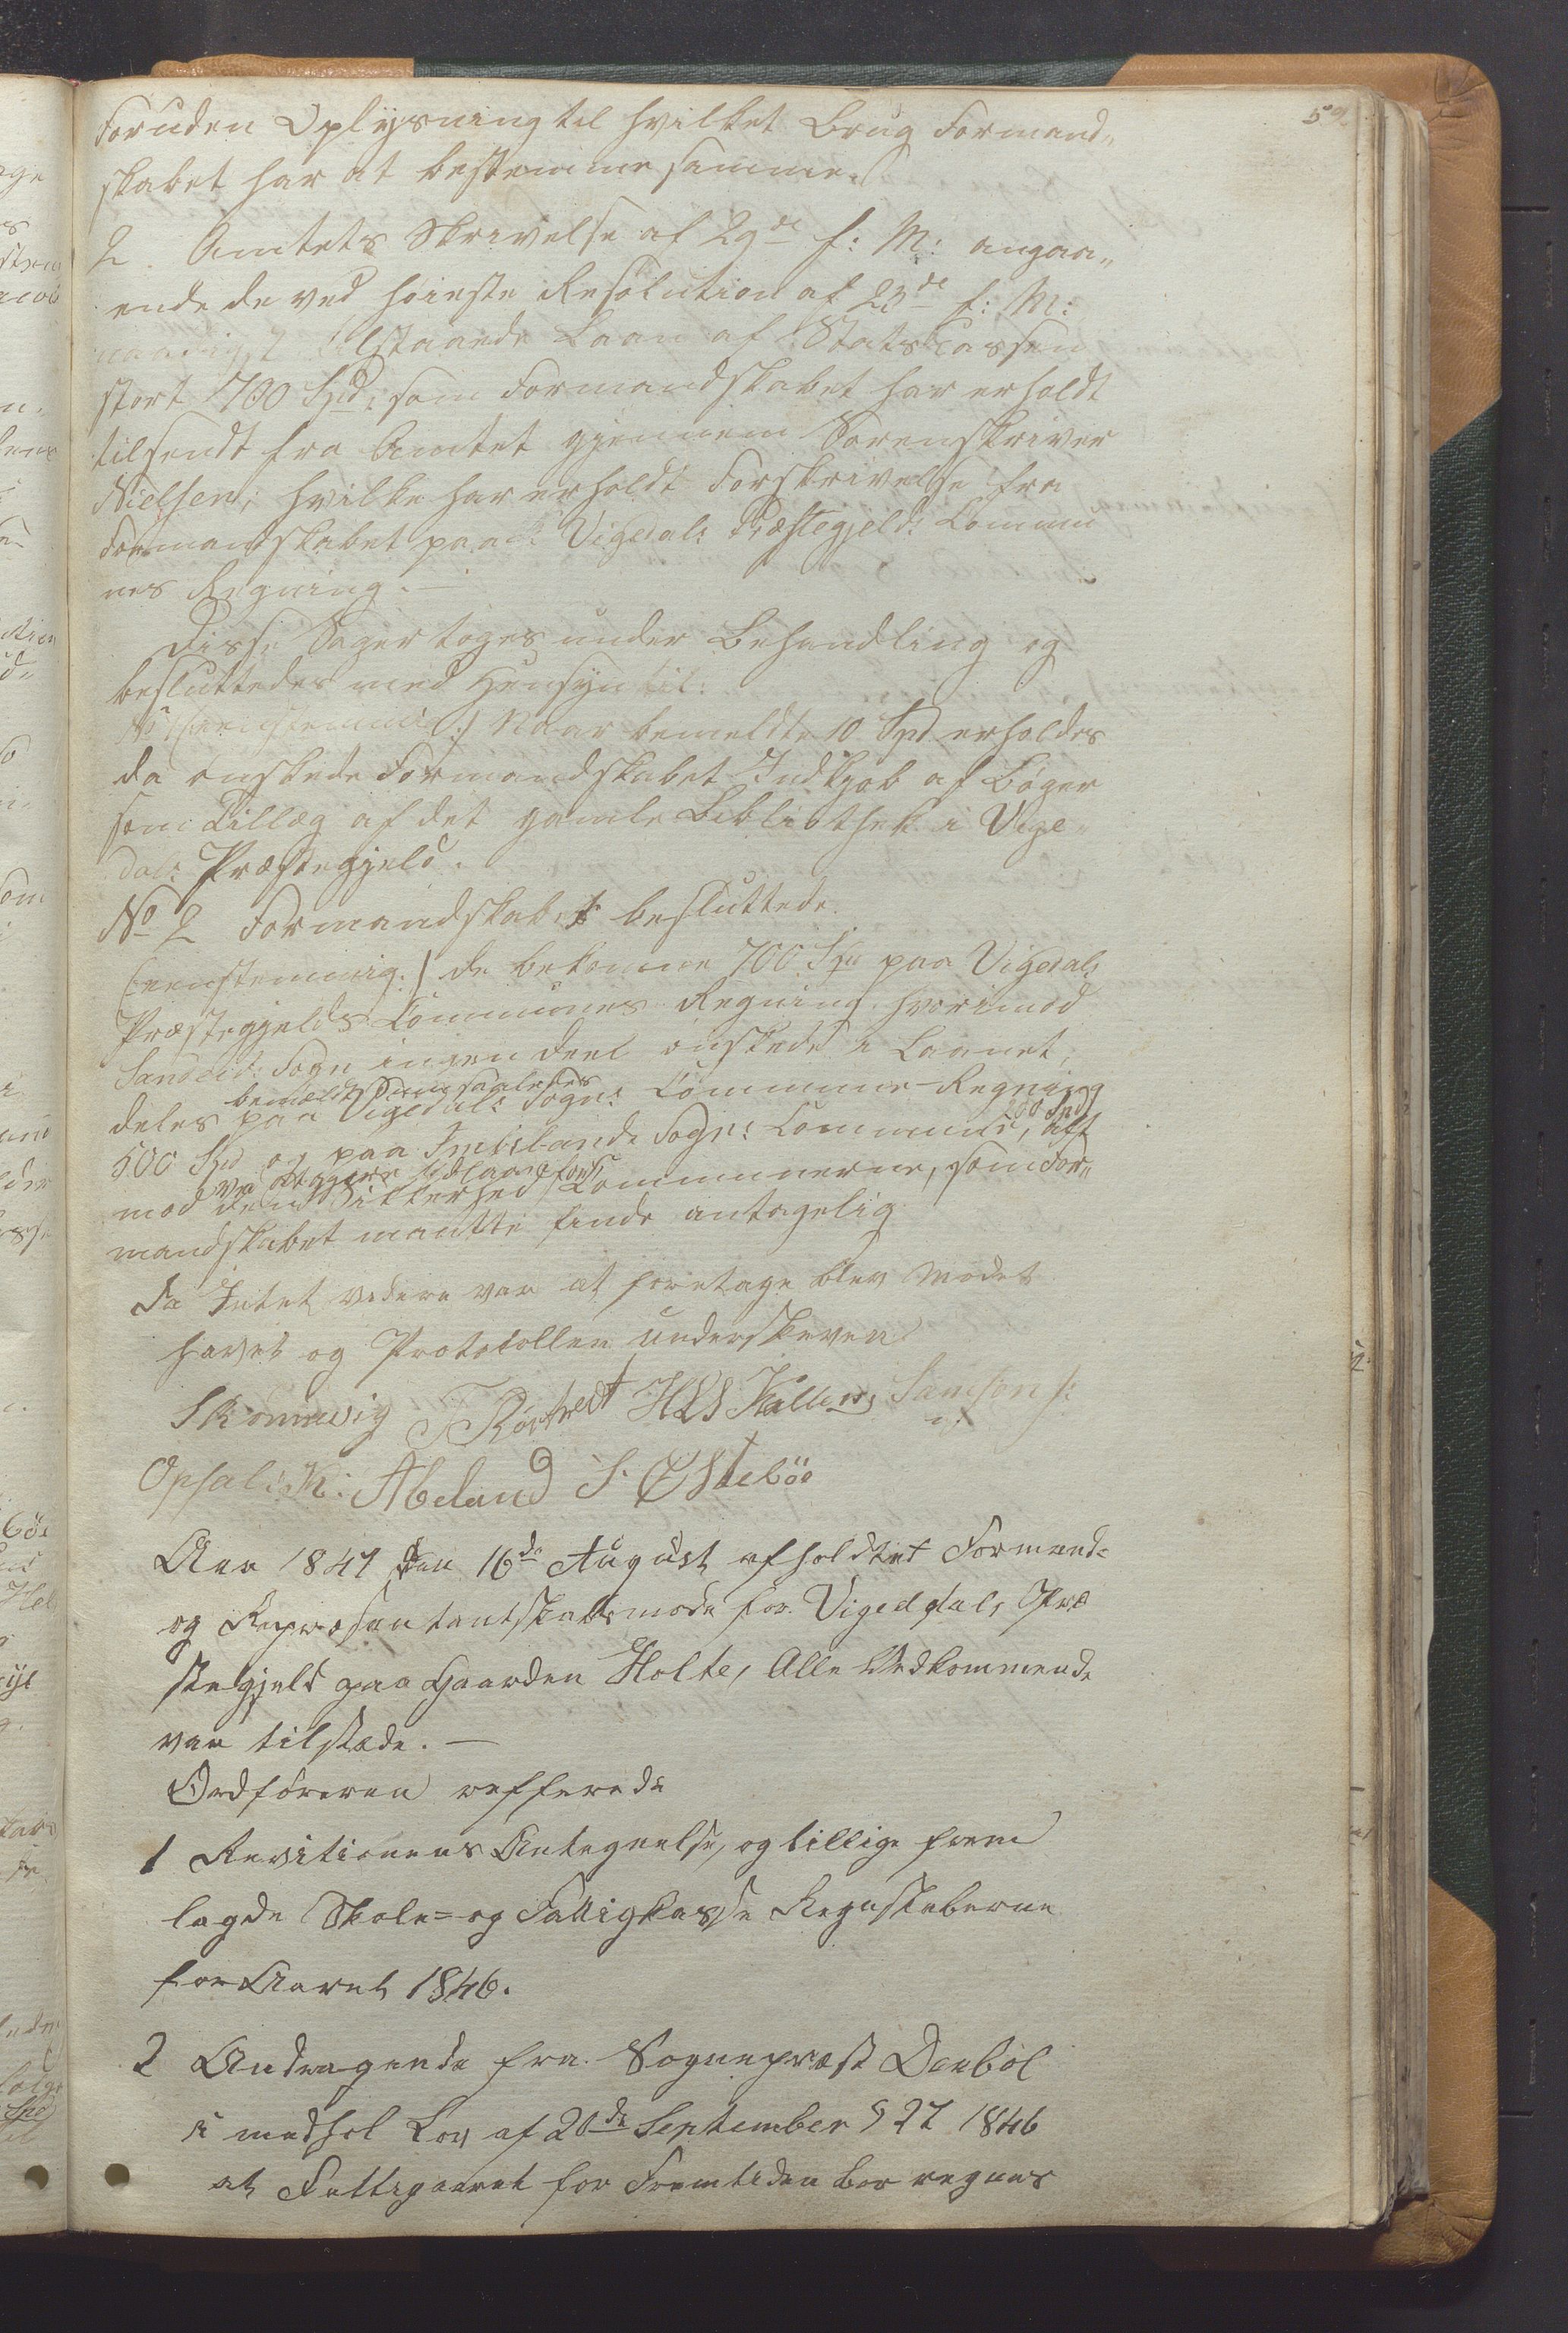 59.
Foruden Oplysning til hvilket Brug Formand„
skabet har at bestemme samme.
2. Amtets Skrivelse af 29de f: M: angaa„
ende de ved høieste Resolution af 23de f: M:
naadigst tilstaaede Laan af StatsKassen
stort 700 Spd, som Formandskabet har erholdt
tilsendt fra Amtet gjennem Sorenskriver
Nielsen, hvilke har erholdt Forskrivelse fra
Formandskabet paa Vigedals Præstegjelds Commu
nes Regning. —
Disse Sager toges under Behandling og
besluttedes med Hensyn til:
No 1 (eenstemmig:) Naar bemeldte 10 Spd erholdes
da ønskede Formandskabet Indkjøb af Bøger
som Tillæg af det gamle Bibliothek i Vige„
dals Præstegjeld.
No 2 Formandskabet besluttede.
(eenstemmig:) de bekomne 700 Spd paa Vigedals
Præstegjelds Communes Regning hvorimod
Sandeids Sogn ingen Deel ønskede i Laanet,
bemeldte Sum saaledes
deles paa Vigedals Sogns Commune-Regning
500 Spd og paa Imslands Sogns Commune, 200 Spd alt
mod den Sikkerhed Communerne, som For„
mandskabet maatte finde antagelig
Da Intet videre var at foretage blev Mødet
hævet og Protokollen underskreven
Skonnevig T Rørtvedt HLS Hallens Samson s:
Opsal: K: Abeland S. Østebøe
Aar 1847 den 16de August afholdtet Formands
og Repræsentantskabsmøde for Vigeddals Præ
stegjeld paa Gaarden Holte, Alle Vedkommende
var tilstæde. —
Ordføreren refferede
1 Revitionens Antegnelse, og tillige frem
lagde Skole= og Fattigkasse Regnskaberne
for Aaret 1846.
2 Andragende fra Sognepræst Deubol
i medhol Lov af 20de September § 27 1846
at Fattigaaret for Fremtiden bør regnes